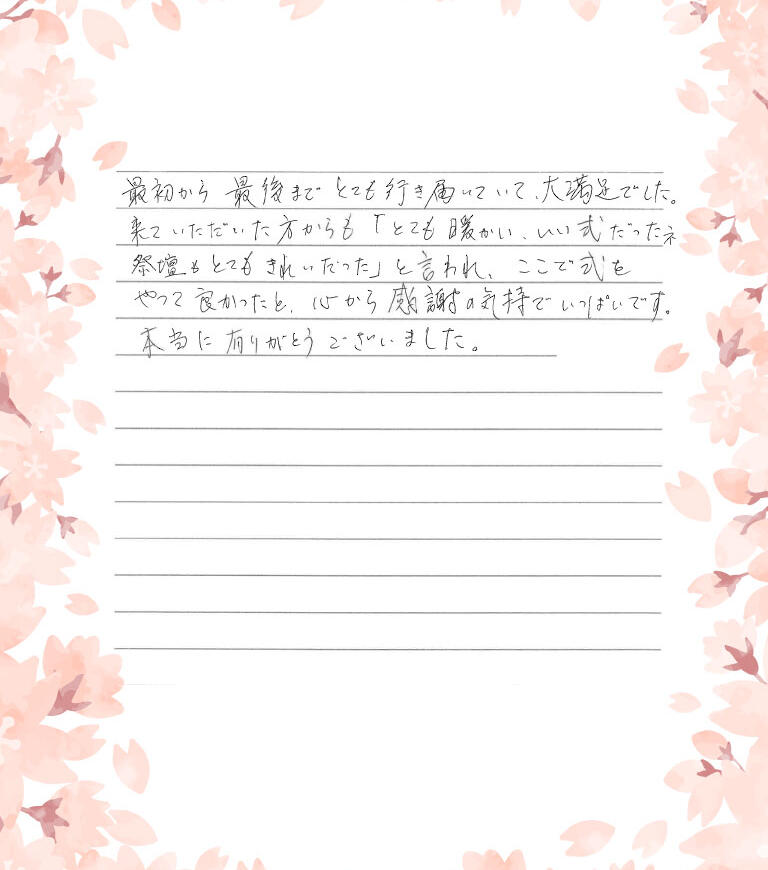 最初から 最後まで とても行き届いていて、大満足でした。
来ていただいた方からも「とても暖かい、いい式だったネ
祭壇もとてもきれいだった」と言われ、ここで式を
やって良かったと、心から感謝の気持でいっぱいです。
本当に有りがとうございました。